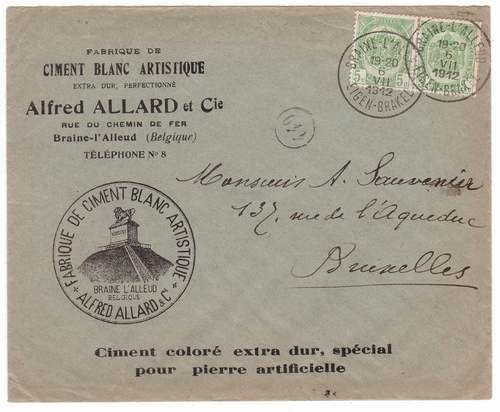 FABRIQUE DE
CIMENT BLANC ARTISTIQUE
EXTRA DUR, PERFECTIONNÉ
Alfred ALLARD et Cie
RUE DU CHEMIN DE FER
Braine-l'Alleud (Belgique)
TÉLÉPHONE No 8
BRAINE-L'ALLEUD
19-20
6
VII
1912
EIGEN-BRAKEL
5
5
BRAINE-L'ALLEUD
19-20
6
VII
1912
EIGEN-BRAKEL
Monsieur A. Sauvenier
137, rue de l'Aqueduc
Bruxelles
FABRIQUE DE CIMENT BLANC ARTISTIQUE
BRAINE L'ALLEUD
BELGIQUE
ALFRED ALLARD & Cº
Ciment coloré extra dur, spécial
pour pierre artificielle